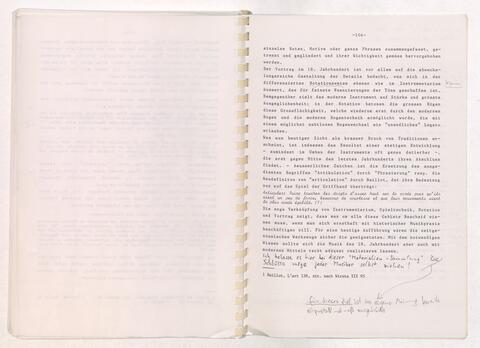 -104-
einzelne Noten, Motive oder ganze Phrasen zusammengefasst, ge-
trennt und gegliedert und ihrer Wichtigkeit gemäss hervorgehoben
werden.
Der Vortrag im 18. Jahrhundert ist vor allem auf die abwechs-
lungsreiche Gestaltung der Details bedacht, was sich in der
differenzierten Notationsweise ebenso wie im Instrumentarium
äussert, das für feinste Nuancierungen der Töne geschaffen ist.
Demgegenüber zielt das moderne Instrument auf Stärke und grösste
Ausgeglichenheit; in der Notation betonen die grossen Bögen
diese Grossflächigkeit, welche wiederum erst durch den modernen
Bogen und die moderne Bogentechnik ermöglicht wurde, die mit
einem möglichst nahtlosen Bogenwechsel ein "unendliches" Legato
erlauben.
Was aus heutiger Sicht als krasser Bruch von Traditionen er-
scheint, ist indessen das Resultat einer stetigen Entwicklung
- zumindest im Umbau der Instrumente oft genau datierbar -,
die erst gegen Mitte des letzten Jahrhunderts ihren Abschluss
findet. - Aeusserliches Zeichen ist die Ersetzung des ausge-
dienten Begriffes "Artikulation" durch "Phrasierung" resp. die
Neudefinition von "articulation" durch Baillot, der ihre Bedeutung
nun auf das Spiel der Griffhand überträgt:
Die enge Verknüpfung von Instrumentarium, Spieltechnik, Notation
und Vortrag zeigt, dass man um alle diese Gebiete Bescheid wis-
sen muss, wenn man sich ernsthaft mit historischer Musikpraxis
beschäftigen will. Für eine heutige Aufführung wären die zeit-
genössischen Werkzeuge sicher die geeignetsten. Mit dem notwendigen
Wissen sollte sich die Musik des 18. Jahrhunderts aber auch mit
modernen Mitteln recht adäquat realisieren lassen.
Ich belasse es hier bei dieser "Materialien-Sammlung". Die
Schlüsse möge jeder Musiker selbst ziehen!
1 Baillot, L'art 138, zit. nach Wirsta III 95